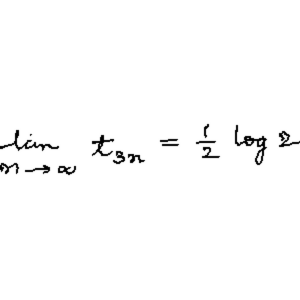 \lim_{n \to \infty} t_{3n} = \frac{1}{2} \log 2